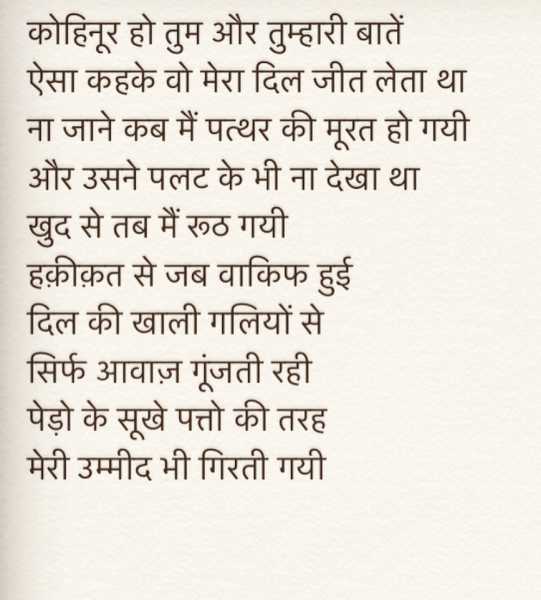 कोहिनूर हो तुम और तुम्हारी बातें
ऐसा कहके वो मेरा दिल जीत लेता था
ना जाने कब मैं पत्थर की मूरत हो गयी
और उसने पलट के भी ना देखा था
खुद से तब मैं रूठ गयी
हक़ीक़त से जब वाकिफ हुई
दिल की खाली गलियों से
सिर्फ आवाज़ गूंजती रही
पेड़ो के सूखे पत्तो की तरह
मेरी उम्मीद भी गिरती गयी